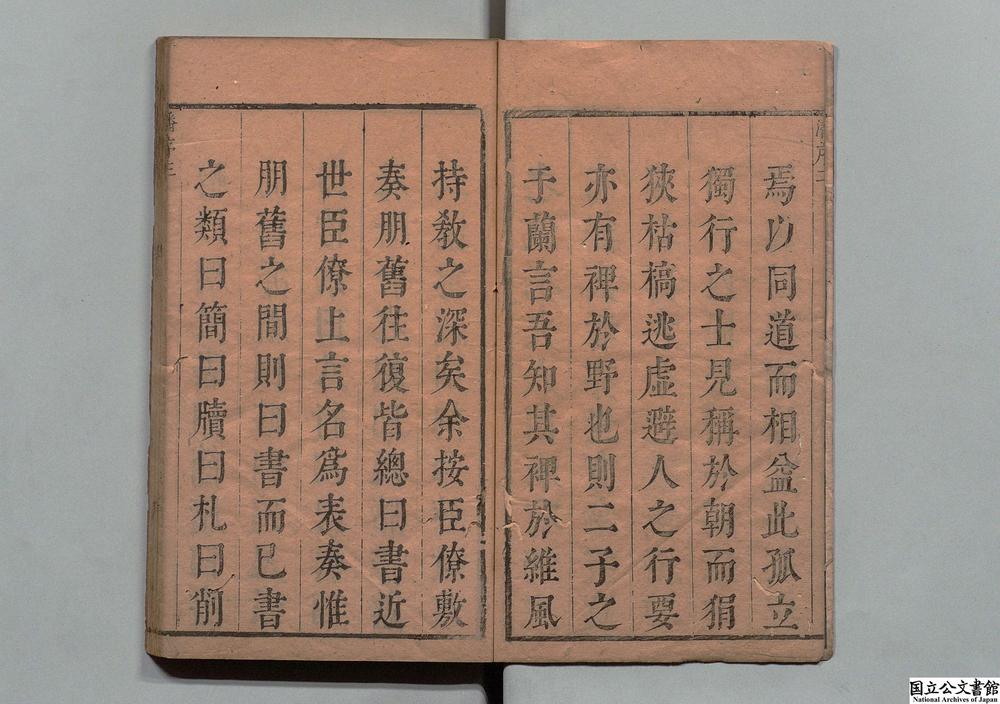 焉以同道而相益此孤立
獨行之士見稱於朝而狷
狹枯槁逃虛避人之行要
亦有裨於野也則二子之
于蘭言吾知其裨於維風
持敎之深矣余按臣僚敷
奏朋舊往復皆總曰書近
世臣僚上言名爲表奏惟
朋舊之間則曰書而已書
之類曰簡曰牘曰札曰削
国立公文書館
National Archives of Japan